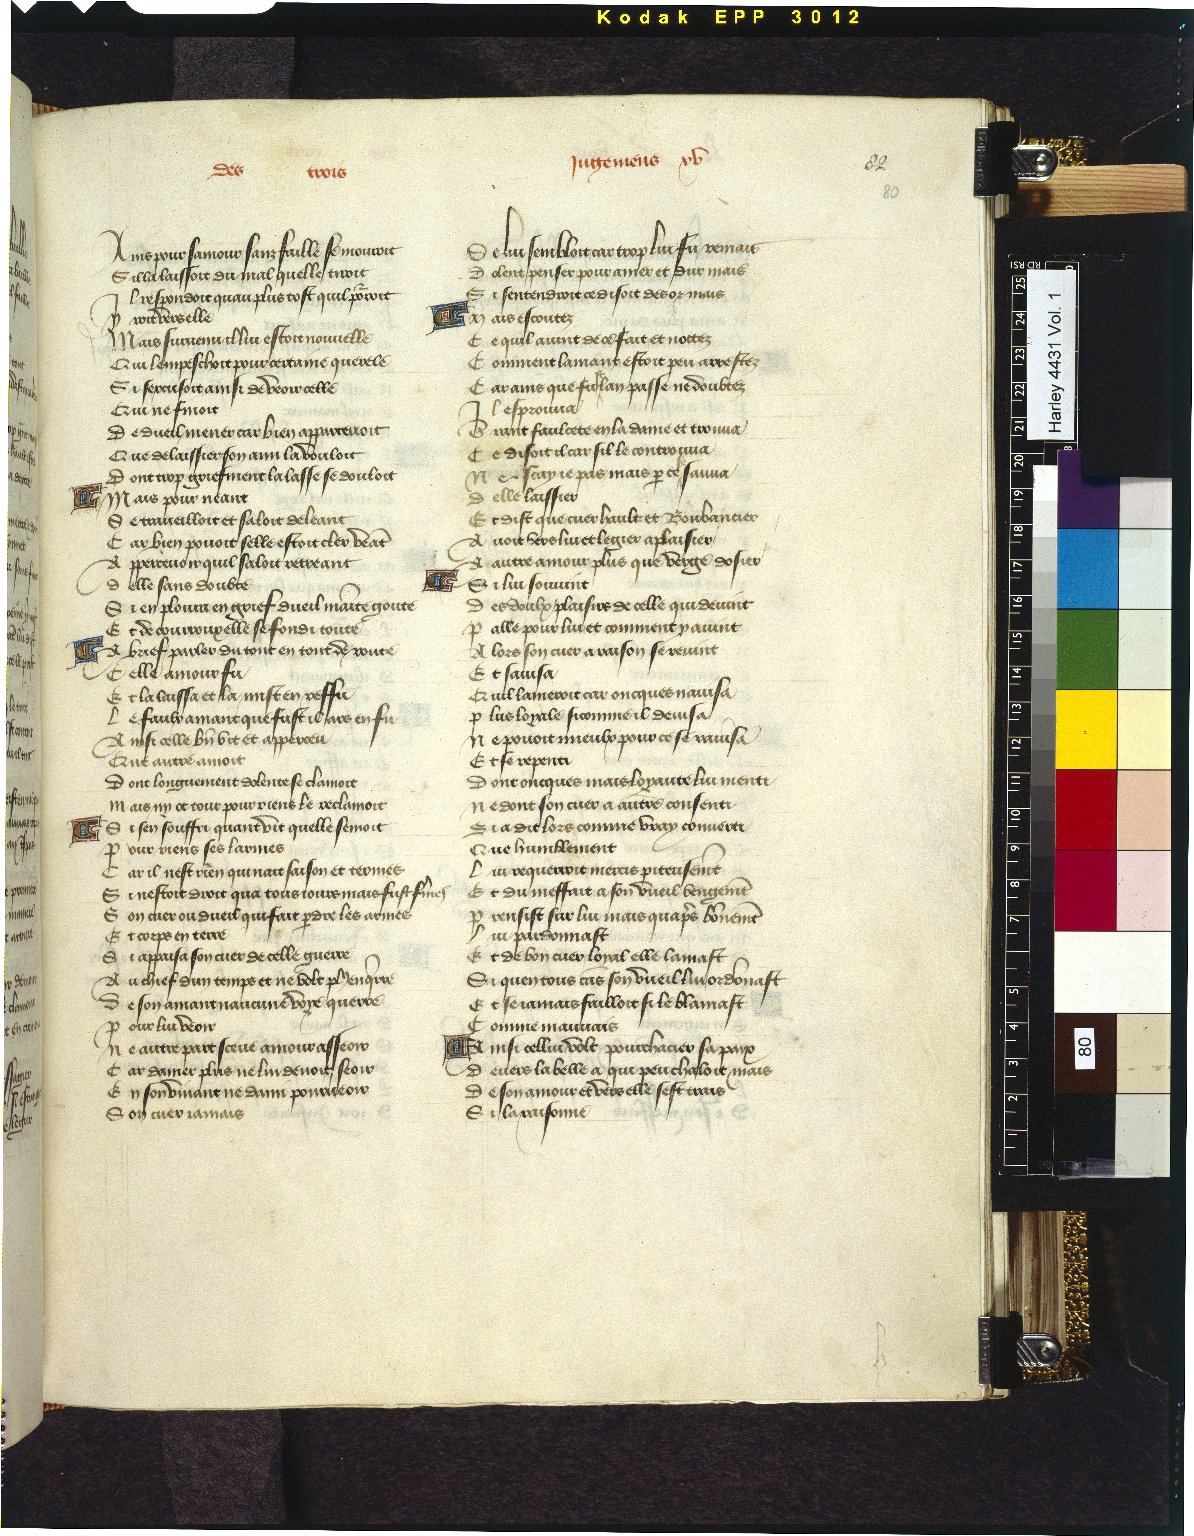 Kodak EPP 3012
des trois
Jugemens xv
82
80
Ains pour samour sanz faille se mouroit
Silla laissoit du mal quelle tiroit
Il respondoit quau plus tost quil porroit
yroit vers elle
Mais survenu il lui estoit nouvelle
Qui lempeschoit pour certaine querele
Si sexcusoit ainsi de veoir celle
Qui ne finoit
De dueil mener car bien appartenoit
Que delaissier son ami la vouloit
Dont trop griefment la lasse se douloit
Mais pour neant
Se travailloit et saloit deleant
Car bien pouoit selle estoit cler veant
Appercevoir quil saloit retreant
delle sans doubte
Si en ploura en grief dueil mainte goute
Et de courroux elle se fondi toute
A brief parler du tout en tout deroute
Celle amour fu
Et la laissa et la mist en reffu
Le faulx amant que fust il ars en fu
Ainsi celle bien vit et apperceu
Que autre amoit
Dont longuement dolente se clamoit
Mais ny ot tour pour riens le reclamoit
Si sen souffri quant vit quelle semoit
Pour riens ses larmes
Car il nest rien qui nait saison et termes
Si nestoit droit qua tous jours mais fust fermes
Son cuer ou dueil qui fait perdre les armes
Et corps en terre
Si appaisa son cuer de celle guerre
Au chief dun temps et ne volt plus enquerre
De son amant naucune voye querre
Pour lui veoir
Ne autre part sceue amour asseoir
Car damer plus ne lui denoit seoir
En son vivant ne dami pourveoir
Son cuer jamais
Se lui sembloit car trop lui fu remais
Dolent penser pour amer et dur mais
Si sentendroit ce disoit desor mais
Mais escoutez
Ce quil avint de ce fait et nottez
Comment lamant estoit peu arrestez
Car ains que fust lan passe ne doubtez
Il esprouva
Grant faulcete en la dame et trouva
Ce disoit il car sil le controuva
Ne scay je pas mais par ce sauva
delle laissier
Et dist que cuer hault et Boubancier
Avoit vers lui et legier a plaisier
A autre amour plus que verge dosier
Si lui souvint
Des doulx plaisirs de celle qui devint
Palle pour lui et comment y avint
Alors son cuer a raison se revint
Et savisa
Quil lameroit car oncques navisa
plus loyale si comme il devisa
Ne pouoit mieulx pour ce se ravisa
Et se repenti
Dont oncques mais loyaute lui menti
Ne dont son cuer a autre consenti
Si a dit lors comme vray converti
Que humblement
Lui requerroit mercis piteusement
Et du meffait a son vueil vengement
Prensist sur lui mais quapres bonement
Lui pardonnast
Et de bon cuer loyal elle lamast
Si quen tous cas son vueil lui ordonnast
Et se jamais failloit si le blamast
Comme mauvais
Ainsi cellui volt pourchacier sa paix
devers la belle a qui peu chaloit mais
De son amour et vers elle sest trais
Si la raisonne
Harley 4431 Vol. 1
80